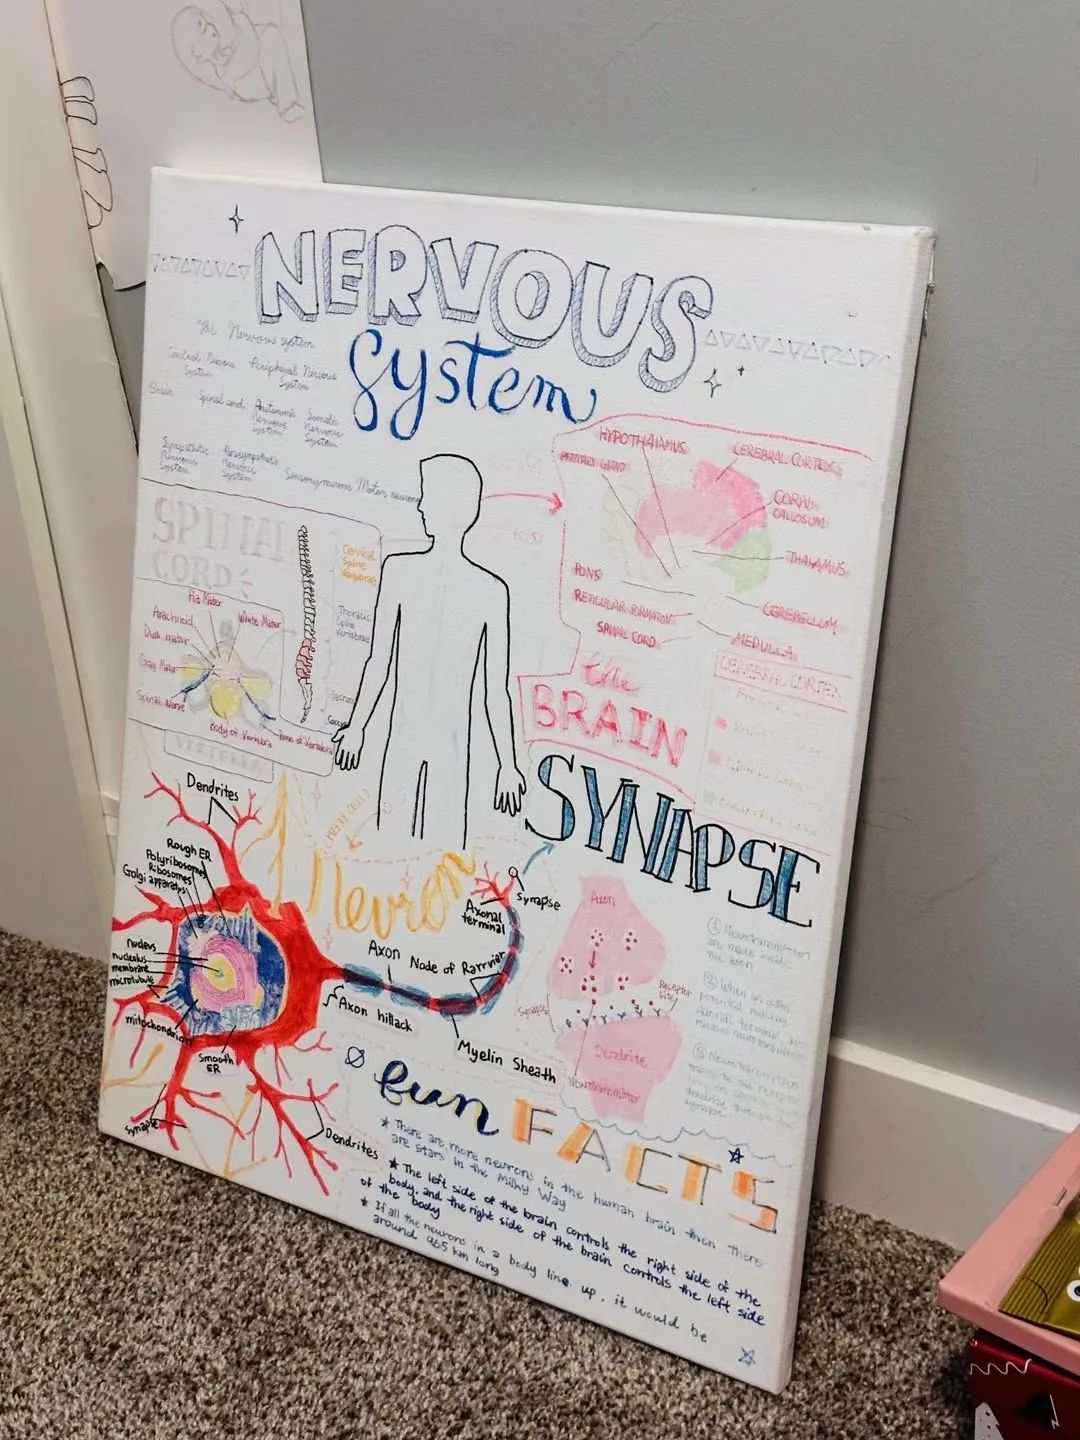 NERVOUS
System
The Nervous system
Central Nervous
System
Peripheral Nervous
System
Brain
Spinal cord
Autonomic
Nervous
System
Somatic
Nervous
System
Sympathetic
Nervous
System
Parasympathetic
Nervous
System
Sensory neurons
Motor neurons
SPINAL
CORD
Cervical
Spine
Vertebrae
Thoracic
Spine
Vertebrae
Pia Mater
Arachnoid
White Matter
Dura mater
Gray Mater
Spinal Nerve
Body of Vertebra
Bone of Vertebra
VERTEBRA
HYPOTHALAMUS
CEREBRAL CORTEX
CALLOSUM
THALAMUS
PONS
RETICULAR FORMATION
CEREBELLUM
SPINAL CORD
MEDULLA
the
BRAIN
CEREBRAL CORTEX
SYNAPSE
Neuron
Dendrites
Rough ER
Polyribosomes
Ribosomes
Golgi apparatus
nucleus
nucleolus
membrane
microtubule
mitochondrion
Smooth
ER
Synapse
Dendrites
Axon
Axon hillack
Node of Ranvier
Myelin Sheath
Axonal
terminal
Synapse
Axon
Receptor
site
Synapse
Dendrite
Neurotransmitter
① Neurotransmitters
are made inside
the axon
② When an action
potential reaches
Axonal terminal,
③ Neurotransmitters
dendrite through the
synapse
fun FACTS
★ There are more neurons in the human brain then there
are stars in the Milky Way
★ The left side of the brain controls the right side of the
body, and the right side of the brain controls the left side
of the body
★ If all the neurons in a body line up, it would be
around 965 km long